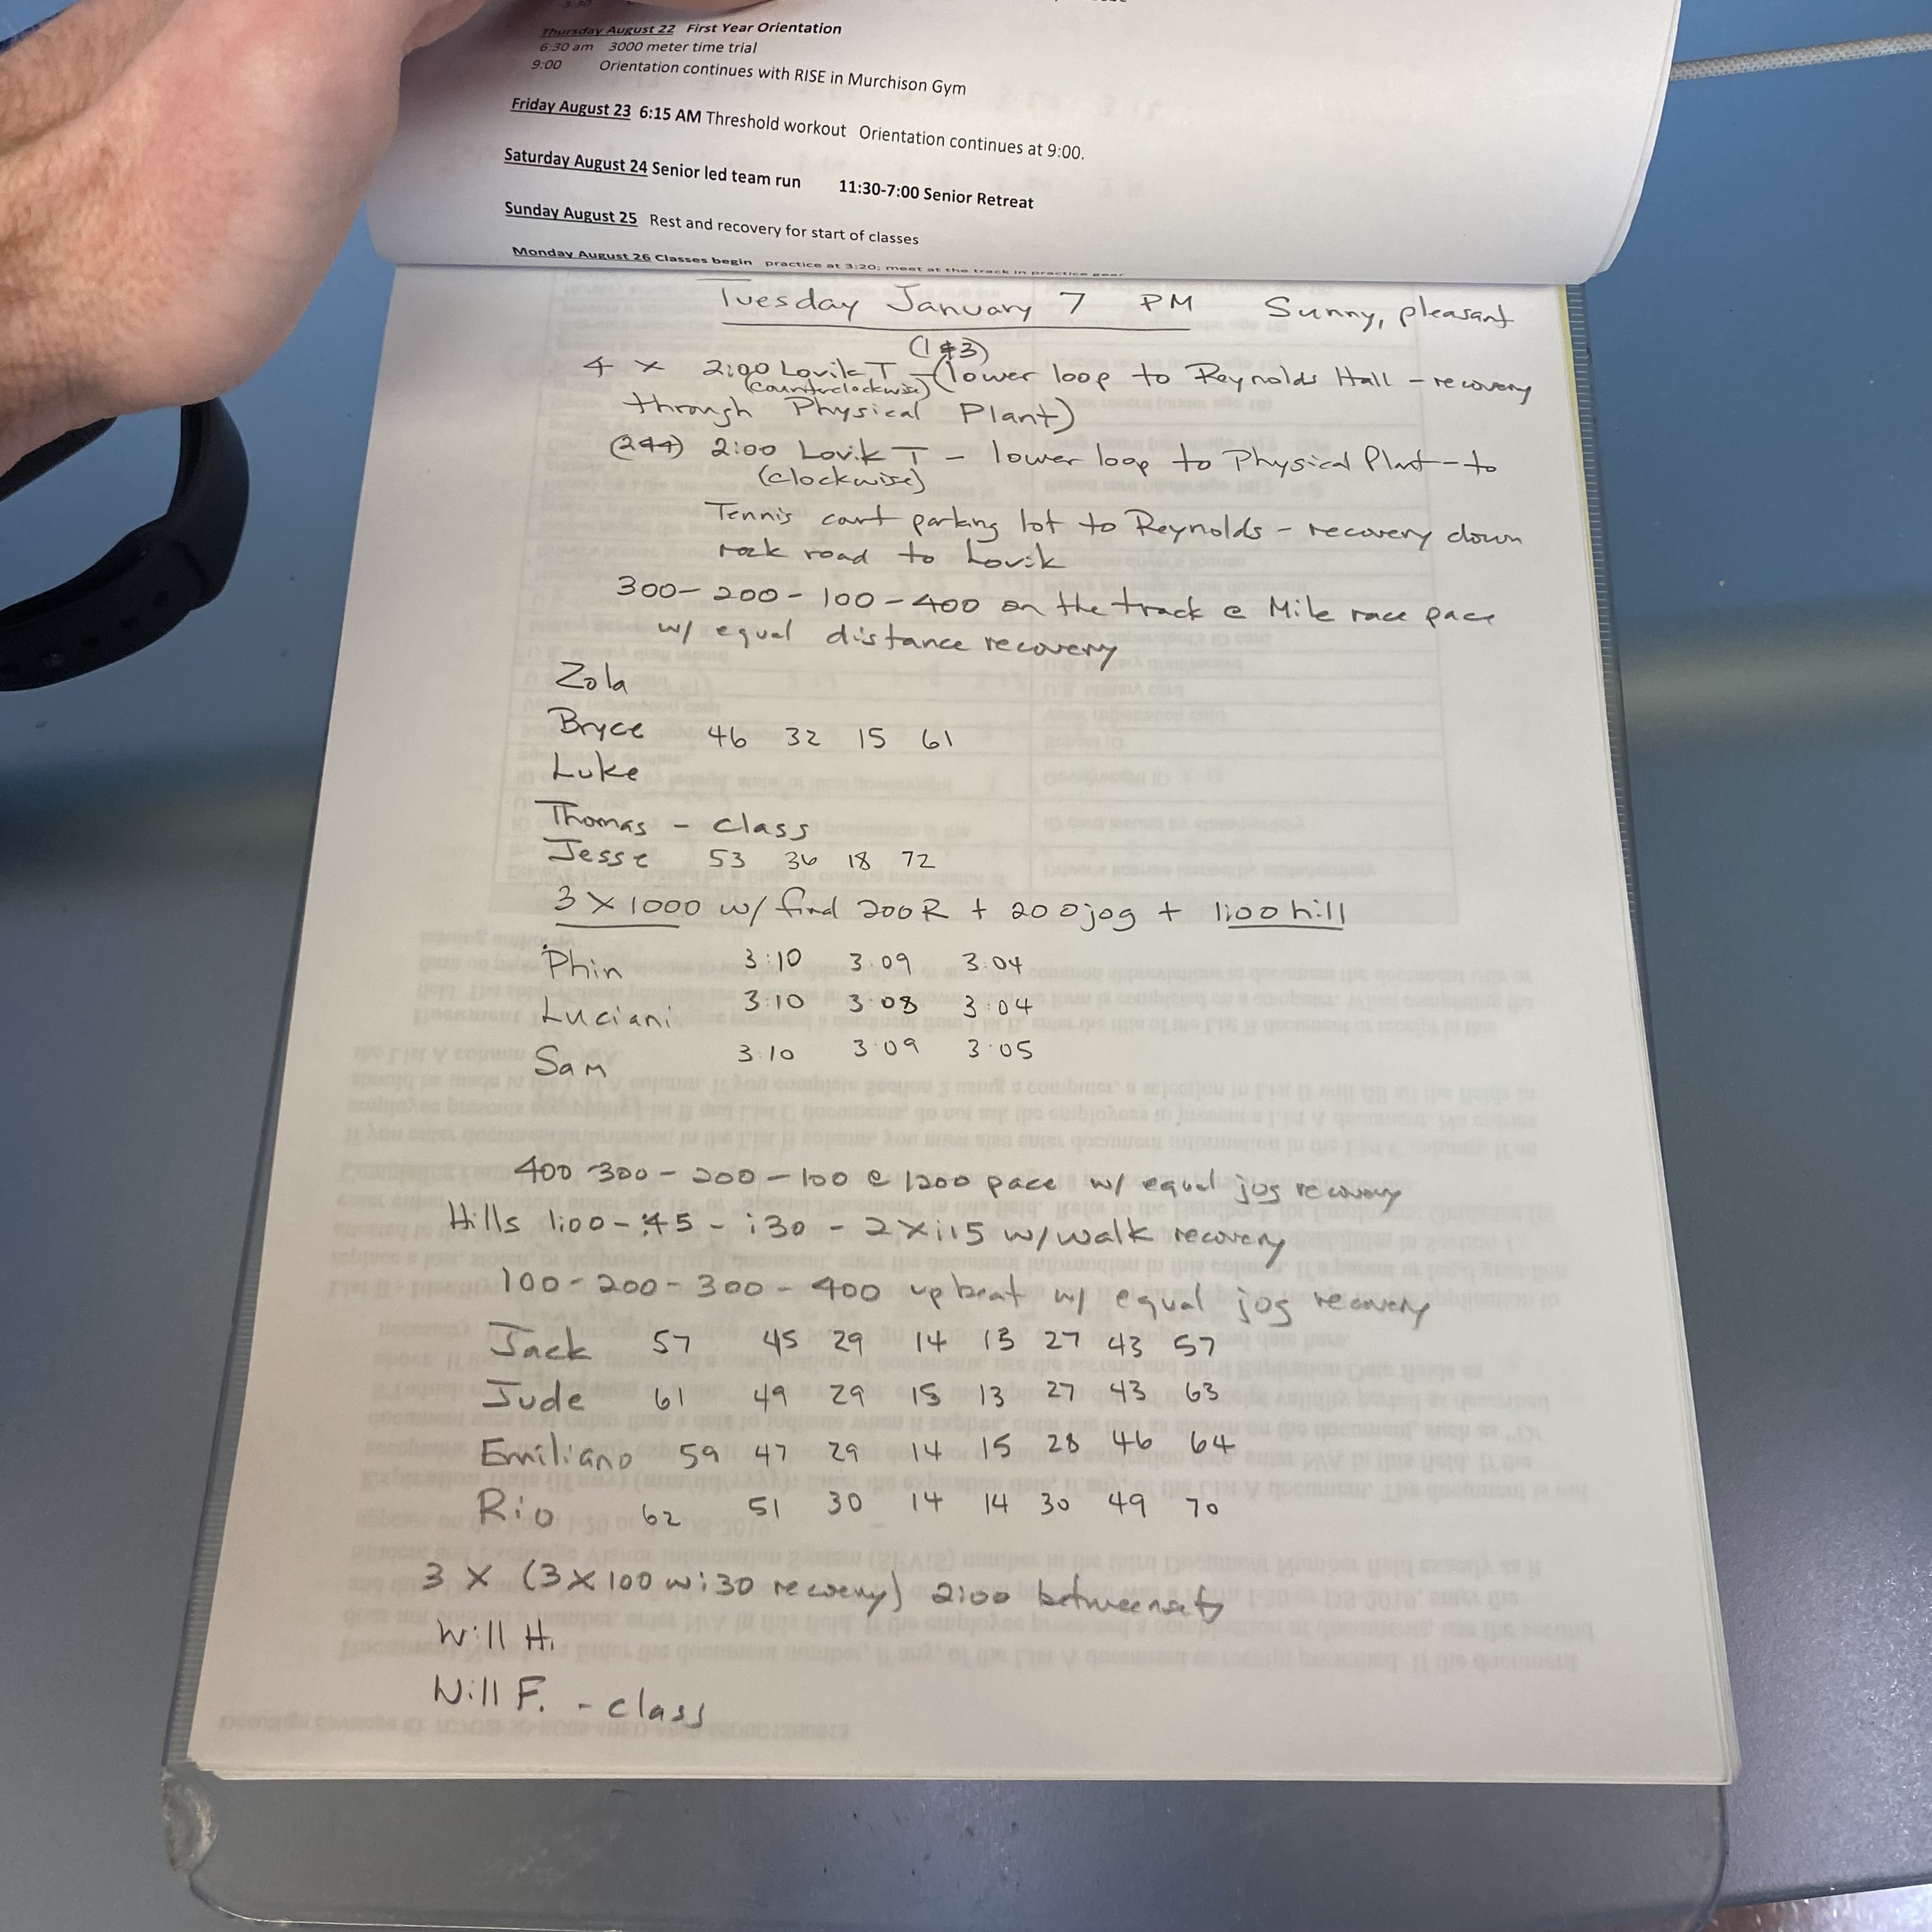 Thursday August 22 First Year Orientation
6:30 am 3000 meter time trial
9:00 Orientation continues with RISE in Murchison Gym
Friday August 23 6:15 AM Threshold workout Orientation continues at 9:00.
Saturday August 24 Senior led team run 11:30-7:00 Senior Retreat
Sunday August 25 Rest and recovery for start of classes
Monday August 26 Classes begin practice at 3:20; meet at the track in practice gear
Tuesday January 7 PM Sunny, pleasant
(1&3)
4 x 2:00 Lovik T - (lower loop to Reynolds Hall - recovery
(counterclockwise)
through Physical Plant)
(2&4) 2:00 Lovik T - lower loop to Physical Plant - to
(clockwise)
Tennis court parking lot to Reynolds - recovery down
rock road to Lovik
300 - 200 - 100 - 400 on the track @ Mile race pace
w/ equal distance recovery
Zola
Bryce 46 32 15 61
Luke
Thomas - class
Jesse 53 36 18 72
3 X 1000 w/ final 200R + 200jog + 1:00 hill
Phin 3:10 3:09 3:04
Luciani 3:10 3:08 3:04
Sam 3:10 3:09 3:05
400-300-200-100 @ 1200 pace w/ equal jog recovery
Hills 1:00 - :45 - :30 - 2 X :15 w/ walk recovery
100 - 200 - 300 - 400 upbeat w/ equal jog recovery
Jack 57 45 29 14 13 27 43 57
Jude 61 49 29 15 13 27 43 63
Emiliano 59 47 29 14 15 28 46 64
Rio 62 51 30 14 14 30 49 70
3 X (3X100 w :30 recovery) 2:00 between sets
Will H.
Will F. - class